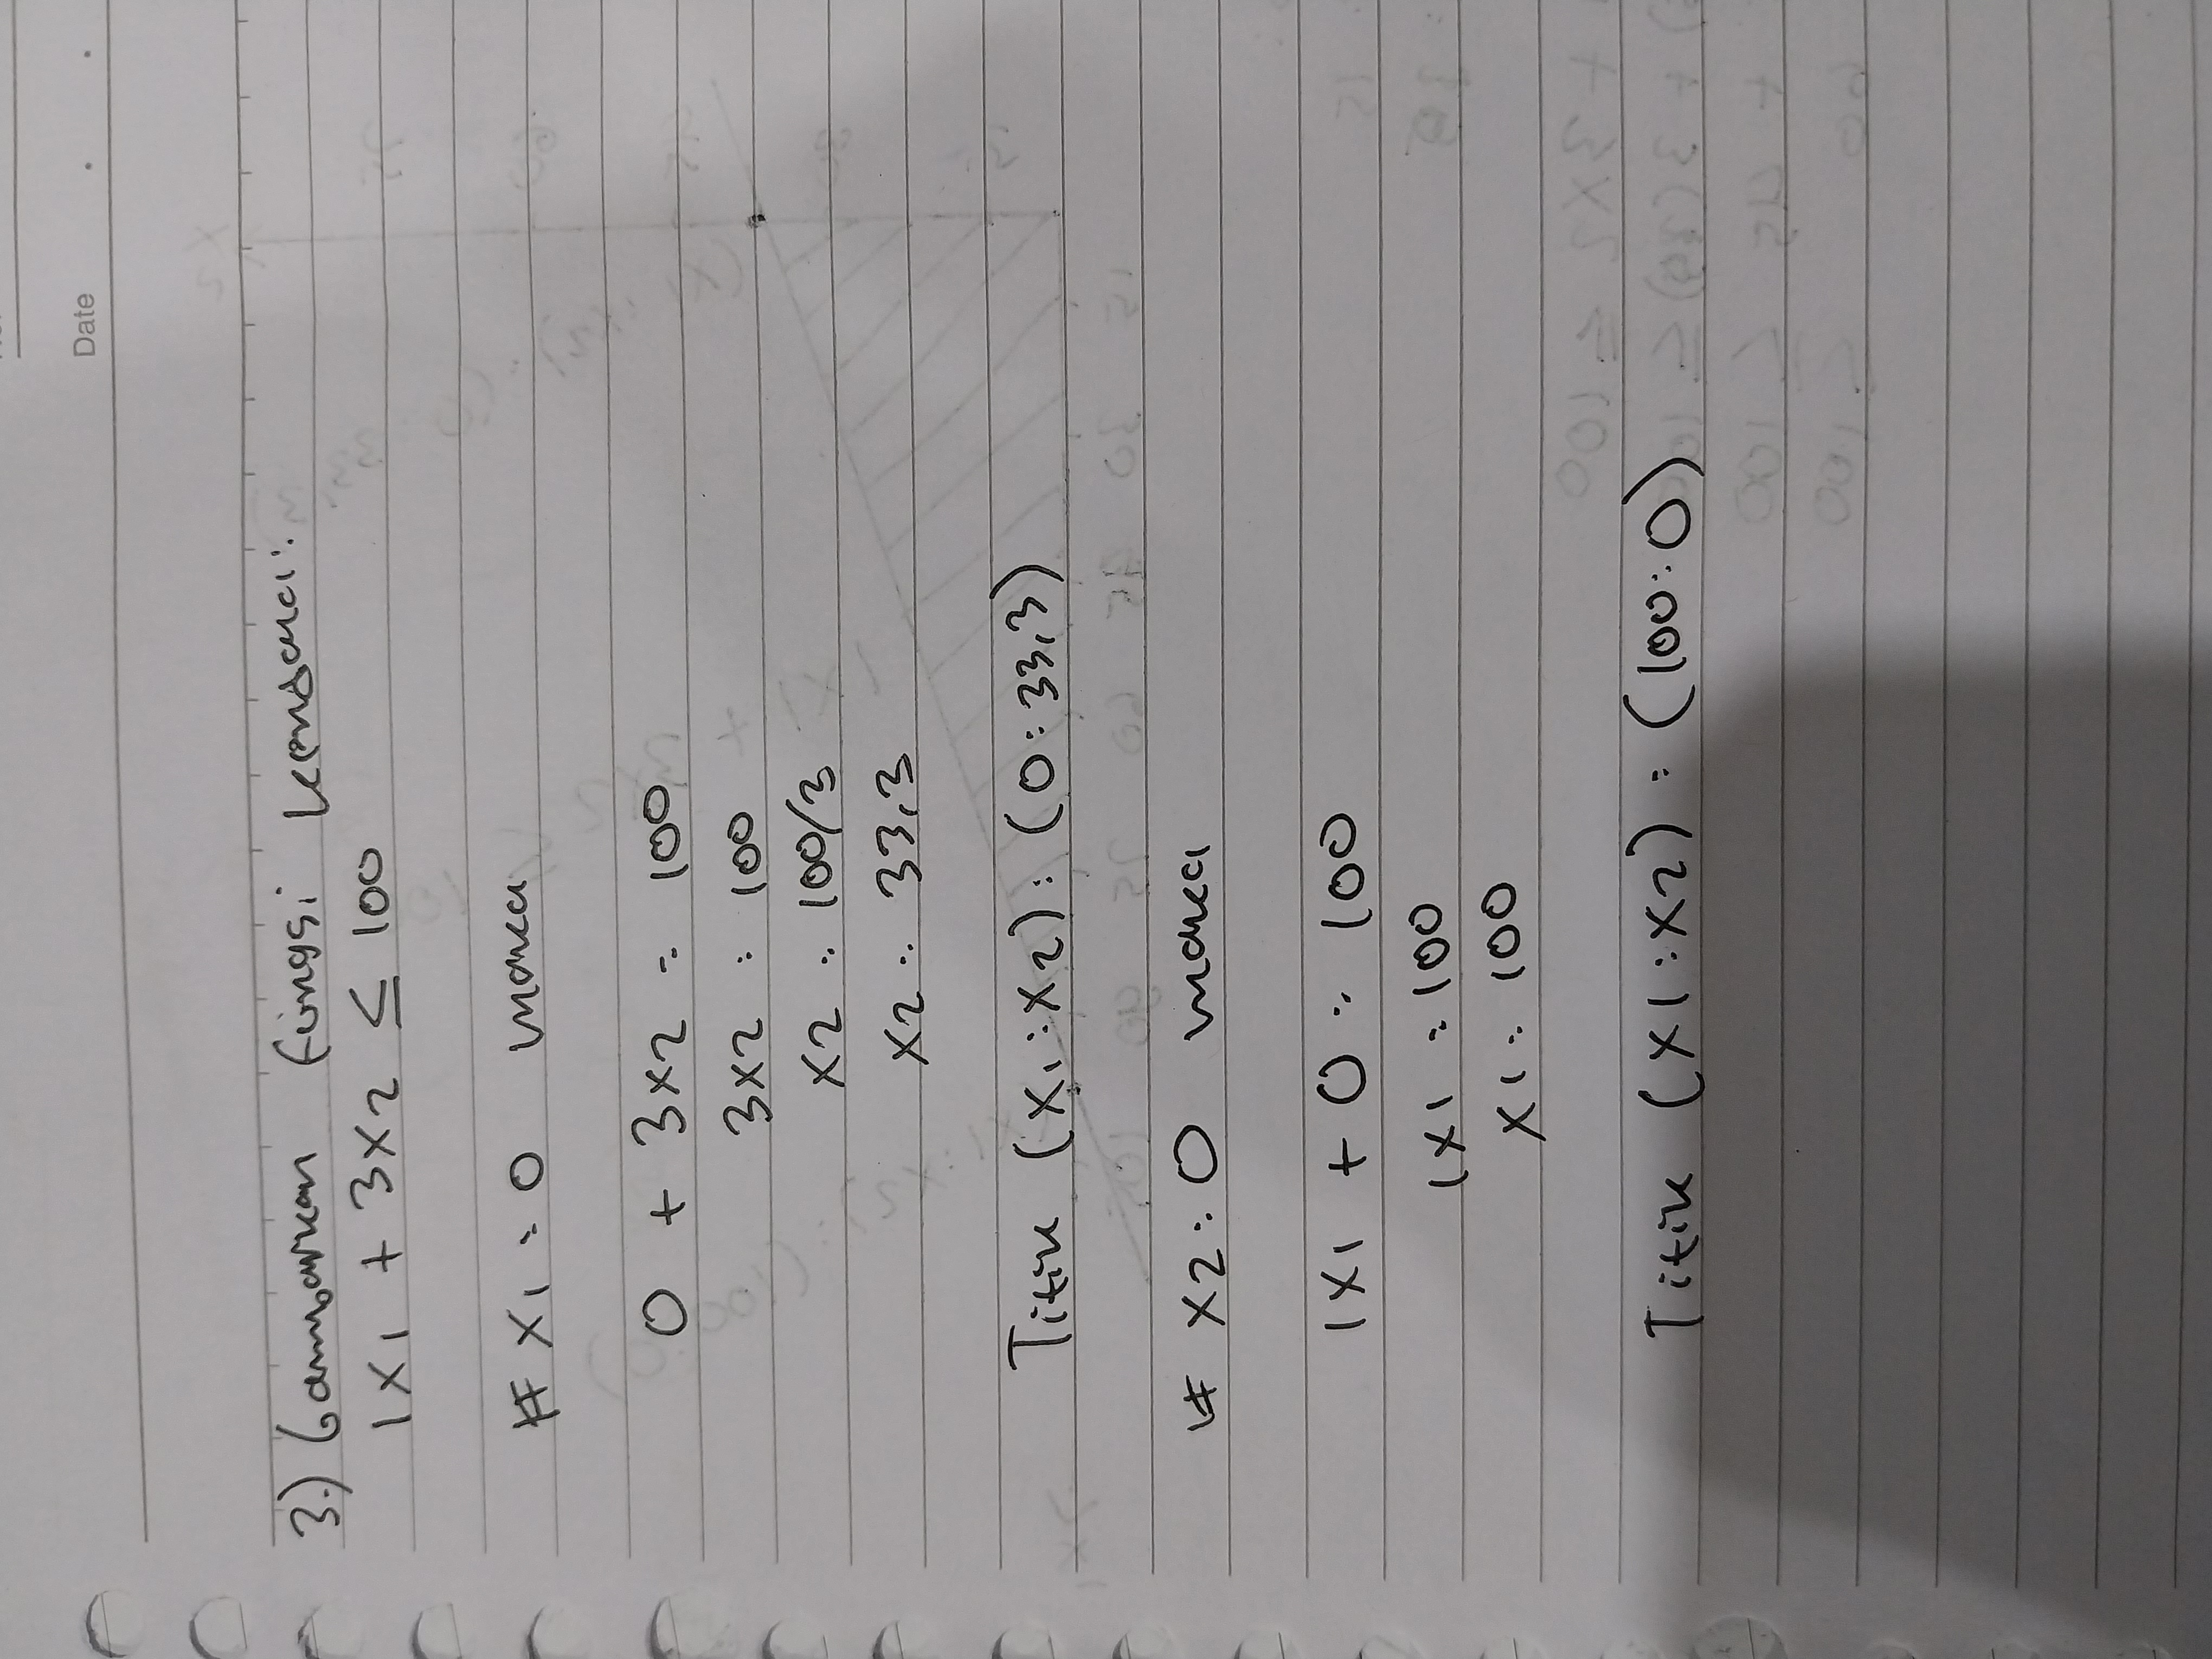 Date
3.) Gambarkan fungsi kendala:
1X1 + 3X2 ≤ 100
# X1 = 0 maka
0 + 3X2 = 100
3X2 = 100
X2 = 100/3
X2 = 33,3
Titik (X1:X2) = (0:33,3)
# X2 = 0 maka
1X1 + 0 = 100
1X1 = 100
X1 = 100
Titik (X1:X2) = (100:0)